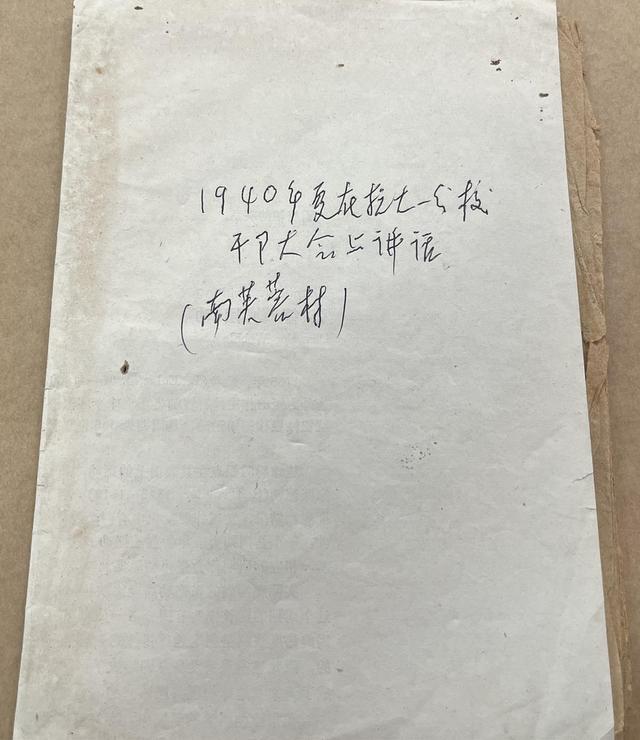 1940年夏在抗大一分校
干卩大会上讲话
(南芙蓉村)